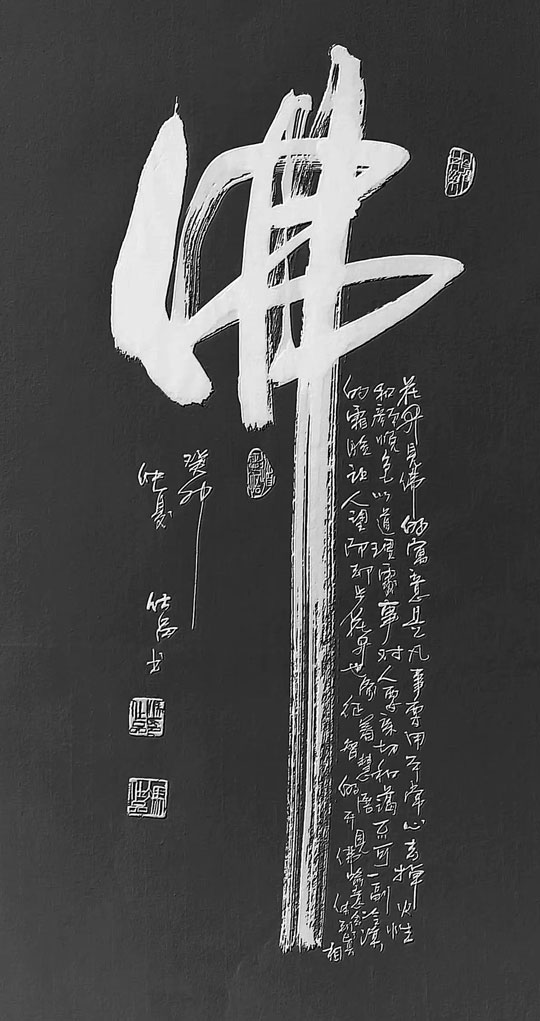 佛
花开见佛的寓意是凡事要用平常心去掉火性
和颜悦色以道理处事对人要亲切和蔼不可一副冷漠
的霜脸让人望而却步花开也象征着智慧的开悟见佛喻意
相
癸卯
仲夏
仕
书